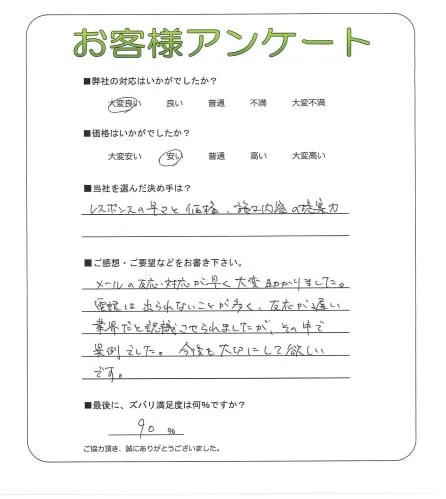 お客様アンケート
■弊社の対応はいかがでしたか？
大変良い 良い 普通 不満 大変不満
■価格はいかがでしたか？
大変安い 安い 普通 高い 大変高い
■当社を選んだ決め手は？
レスポンスの早さと価格、施工内容の提案力
■ご感想・ご要望などをお書き下さい。
メールの反応・対応が早く大変助かりました。
電話は出られないことが多く、反応が遅い
業界だと認識させられましたが、その中で
異例でした。今後も大切にして欲しい
です。
■最後に、ズバリ満足度は何%ですか？
90 %
ご協力頂き、誠にありがとうございました。